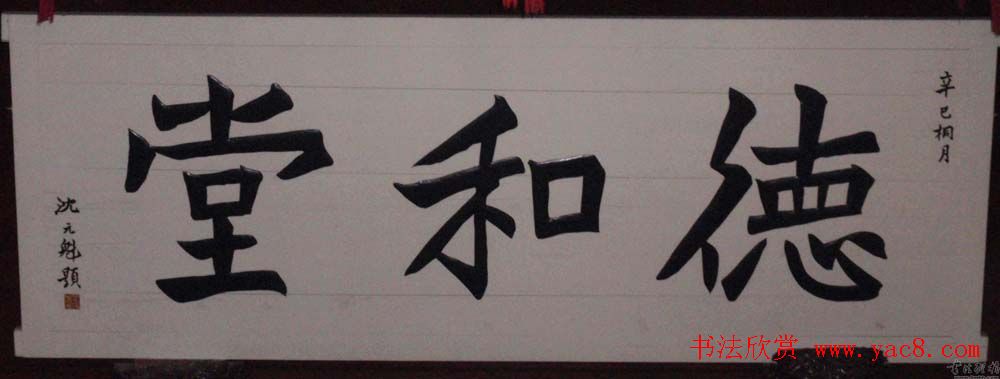 辛巳桐月
德和堂
沈元魁題
书法欣赏 www.yac8.com